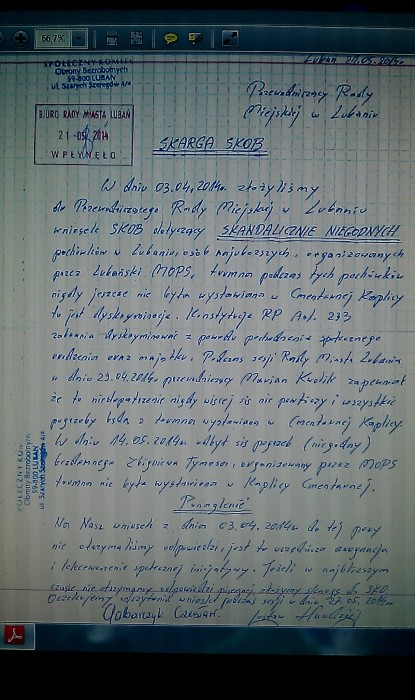 66,7%
Lubań 21.05.2014r.
SPOŁECZNY KOMITET
Obrony Bezrobotnych
59-800 LUBAŃ
ul. Szarych Szeregów 4/4
Przewodniczący Rady
Miejskiej w Lubaniu
BIURO RADY MIASTA LUBAŃ
21 -05- 2014
WPŁYNĘŁO
SKARGA SKOB
W dniu 03.04.2014r. złożyliśmy
do Przewodniczącego Rady Miejskiej w Lubaniu
wniosek SKOB dotyczący SKANDALICZNIE NIEGODNYCH
pochówków w Lubaniu, osób najuboższych, organizowanych
przez Lubański MOPS, trumna podczas tych pochówków
nigdy jeszcze nie była wystawiona w Cmentarnej Kaplicy
to jest dyskryminacja. Konstytucja RP Art. 233
zabrania dyskryminować z powodu pochodzenia społecznego
urodzenia oraz majątku. Podczas sesji Rady Miasta Lubania
w dniu 29.04.2014r przewodniczący Marian Kwolik zapewniał
że to niedopatrzenie nigdy więcej się nie powtórzy i wszystkie
pogrzeby będą z trumną wystawioną w Cmentarnej Kaplicy.
W dniu 14.05.2014r odbył się pogrzeb (niegodny)
bezdomnego Zbigniewa, organizowany przez MOPS
trumna nie była wystawiona w Kaplicy Cmentarnej.
Ponaglenie
Na Nasz wniosek z dnia 03.04.2014r do tej pory
nie otrzymaliśmy odpowiedzi, jest to urzędnicza arogancja
i lekceważenie społecznej inicjatywy. Jeżeli w najbliższym
czasie nie otrzymamy odpowiedzi pisemnej, złożymy skargę do SKO.
Oczekujemy odczytania wniosku podczas sesji w dniu 27.05.2014r
SPOŁECZNY KOMITET
Obrony Bezrobotnych
59-800 LUBAŃ
ul. Szarych Szeregów 4/4